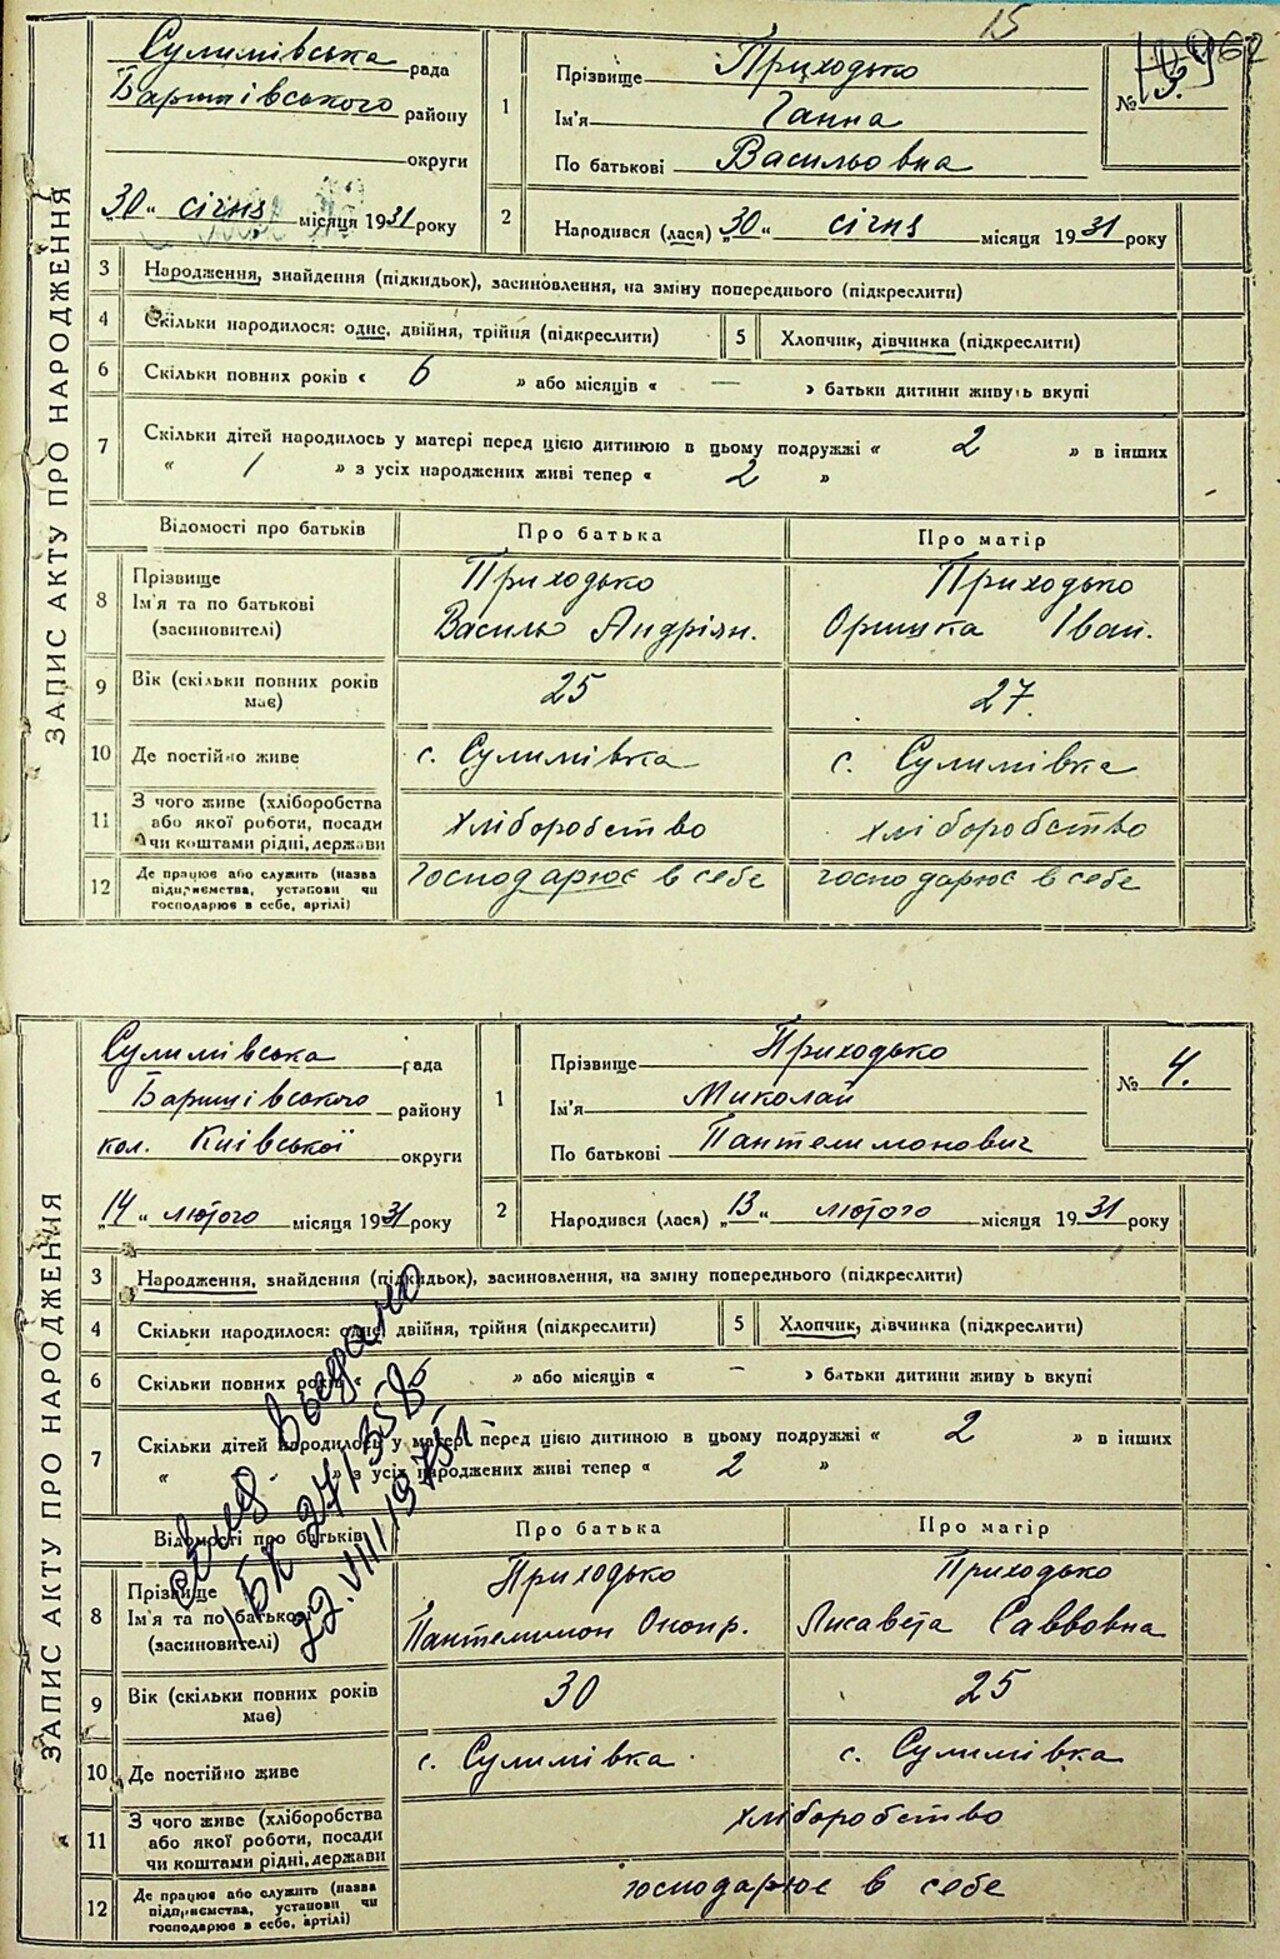 15
62
ЗАПИС АКТУ ПРО НАРОДЖЕННЯ
Сулимівська рада
Баришівського району
округи
„30“ січня місяця 1931 року
1
Прізвище Приходько
Ім'я Ганна
По батькові Васильовна
№ 3.
2
Народився (лася) „30“ січня місяця 1931 року
3 Народження, знайдення (підкидьок), засиновлення, на зміну попереднього (підкреслити)
4 Скільки народилося: одне, двійня, трійня (підкреслити) 5 Хлопчик, дівчинка (підкреслити)
6 Скільки повних років « 6 » або місяців « — » батьки дитини живуть вкупі
7 Скільки дітей народилось у матері перед цією дитиною в цьому подружжі « 2 » в інших
« 1 » з усіх народжених живі тепер « 2 »
Відомості про батьків Про батька Про матір
8 Прізвище Приходько Приходько
Ім'я та по батькові Василь Андріян. Оришка Іван.
(засиновителі)
9 Вік (скільки повних років 25 27.
має)
10 Де постійно живе с. Сулимівка с. Сулимівка
11 З чого живе (хліборобства
або якої роботи, посади хліборобство хліборобство
чи коштами рідні, держави
12 Де працює або служить (назва господарює в себе господарює в себе
підприємства, установи чи
господарює в себе, артілі)
ЗАПИС АКТУ ПРО НАРОДЖЕННЯ
Сулимівська рада
Баришівського району
кол. Київської округи
„14“ лютого місяця 1931 року
1
Прізвище Приходько
Ім'я Миколай
По батькові Пантелимонович
№ 4.
2
Народився (лася) „13“ лютого місяця 1931 року
3 Народження, знайдення (підкидьок), засиновлення, на зміну попереднього (підкреслити)
4 Скільки народилося: одне, двійня, трійня (підкреслити) 5 Хлопчик, дівчинка (підкреслити)
6 Скільки повних років « » або місяців « – » батьки дитини живу ь вкупі
7 Скільки дітей народилось у матері перед цією дитиною в цьому подружжі « 2 » в інших
« » з усіх народжених живі тепер « 2 »
Відомості про батьків Про батька Про матір
8 Прізвище Приходько Приходько
Ім'я та по батькові Пантелимон Онопр. Лисавета Саввовна
(засиновителі)
9 Вік (скільки повних років 30 25
має)
10 Де постійно живе с. Сулимівка с. Сулимівка
11 З чого живе (хліборобства хліборобство
або якої роботи, посади
чи коштами рідні, держави
12 Де працює або служить (назва господарює в себе
підприємства, установи чи
господарює в себе, артілі)
22.VIII 1975